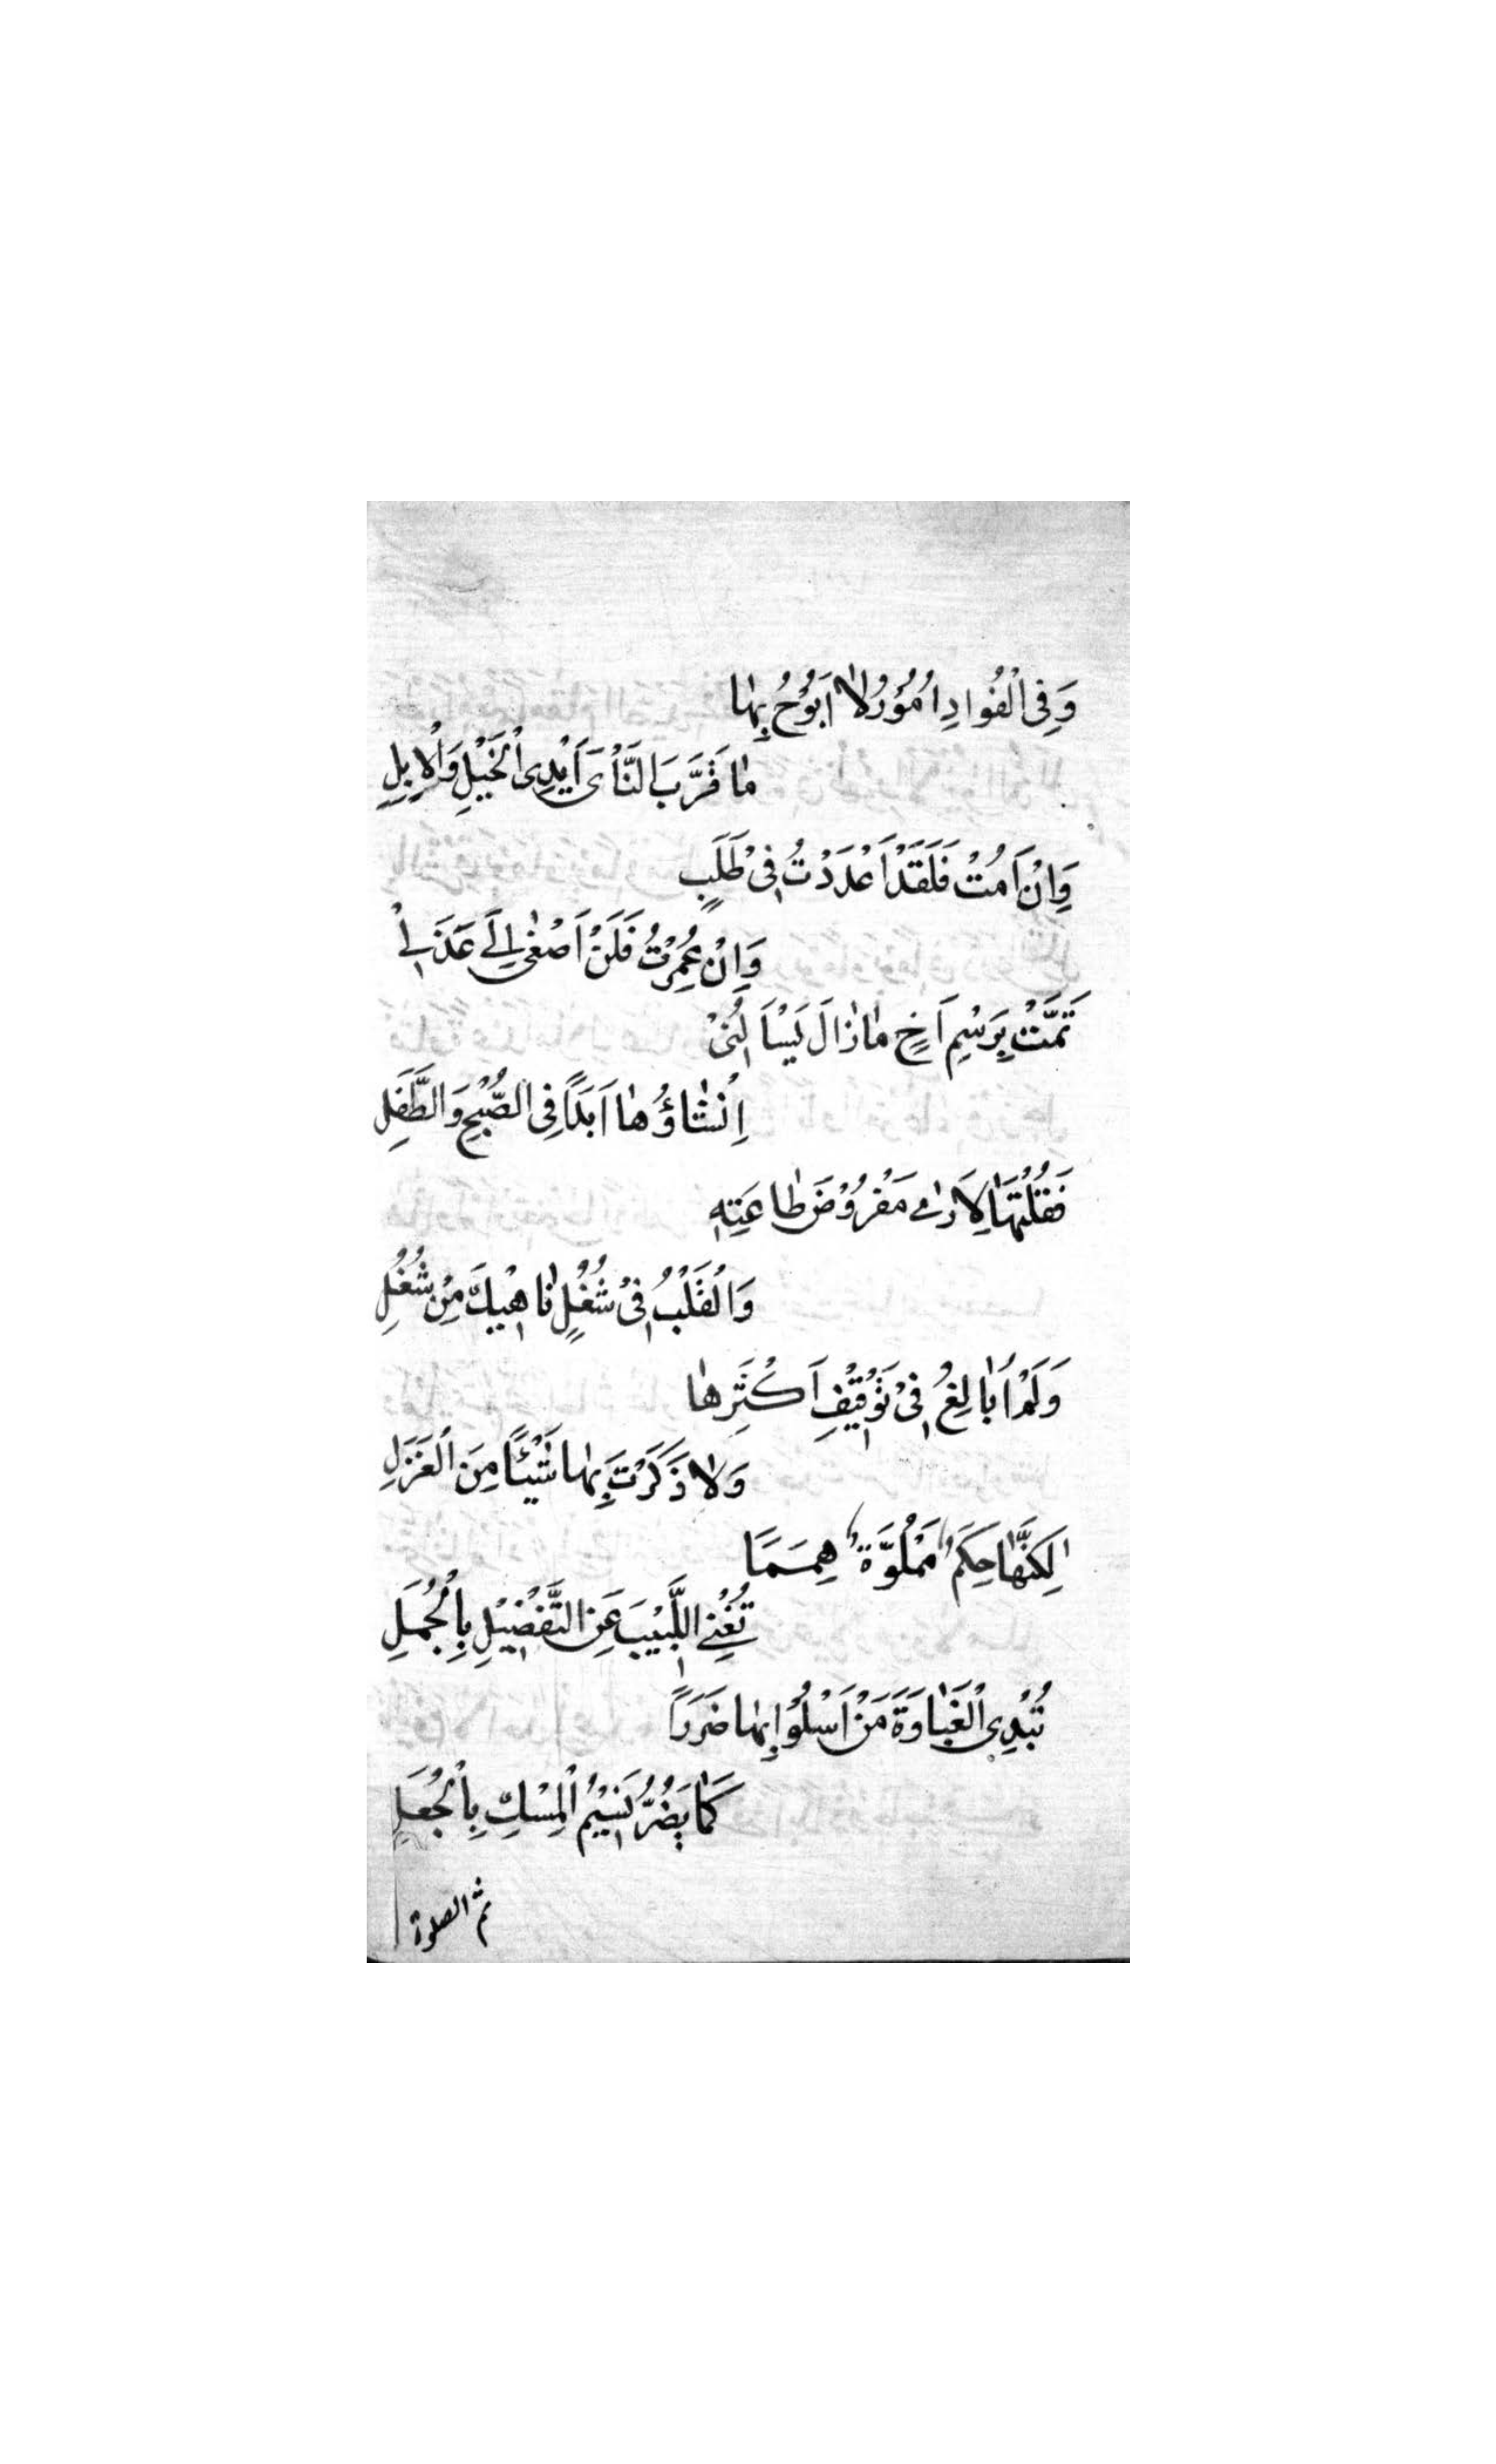 وَفِى الْفُوادِ اُمُوُرٌ لاٰ اَبَوُحُ بِهٰا
مٰا قَرَّبَ النَّأْىَ اَيْدِى الْخَيْلِ وَالْاِبِلِ
وَاِنْ اَمُتْ فَلَقَدْ اَعْدَدْتُ فِىْ طَلَبٍ
وَاِنْ عُمِرْتُ فَلَنْ اَصْغٰى اِلَى عَذَلِىْ
تَمَّتْ بِرَسْمِ اَخٍ مٰا زٰالَ يَسْاَلُنِىْ
اِنْشٰاؤُهٰا اَبَداً فِى الصُّبْحِ وَالطَّفَلِ
فَقُلْتُهٰا لِاَرٰى مَفْرُوْضَ طٰاعَتِهِ
وَالْقَلْبُ فِىْ شُغْلٍ نٰاهِيْكَ مِنْ شُغُلِ
وَلَمْ اُبٰالِغْ فِىْ تَوْقِيْفِ اَكْثَرِهٰا
وَلاٰ ذَكَرْتَ بِهٰا شَيْئاً مِنَ الْغَزَلِ
لٰكِنَّهٰا حِكَمٌ مَمْلُوَّةٌ هِمَمًا
تُغْنِى اللَّبِيْبَ عَنِ التَّفْضِيْلِ بِالْجُمَلِ
تُبْدِى الْغَبٰاوَةَ مَنْ اَسْلُوْا بِهٰا ضَرَراً
كَمٰا يَضُرُّ نَسِيْمُ الْمِسْكِ بِالْجُعَلِ
ثم الصلوة